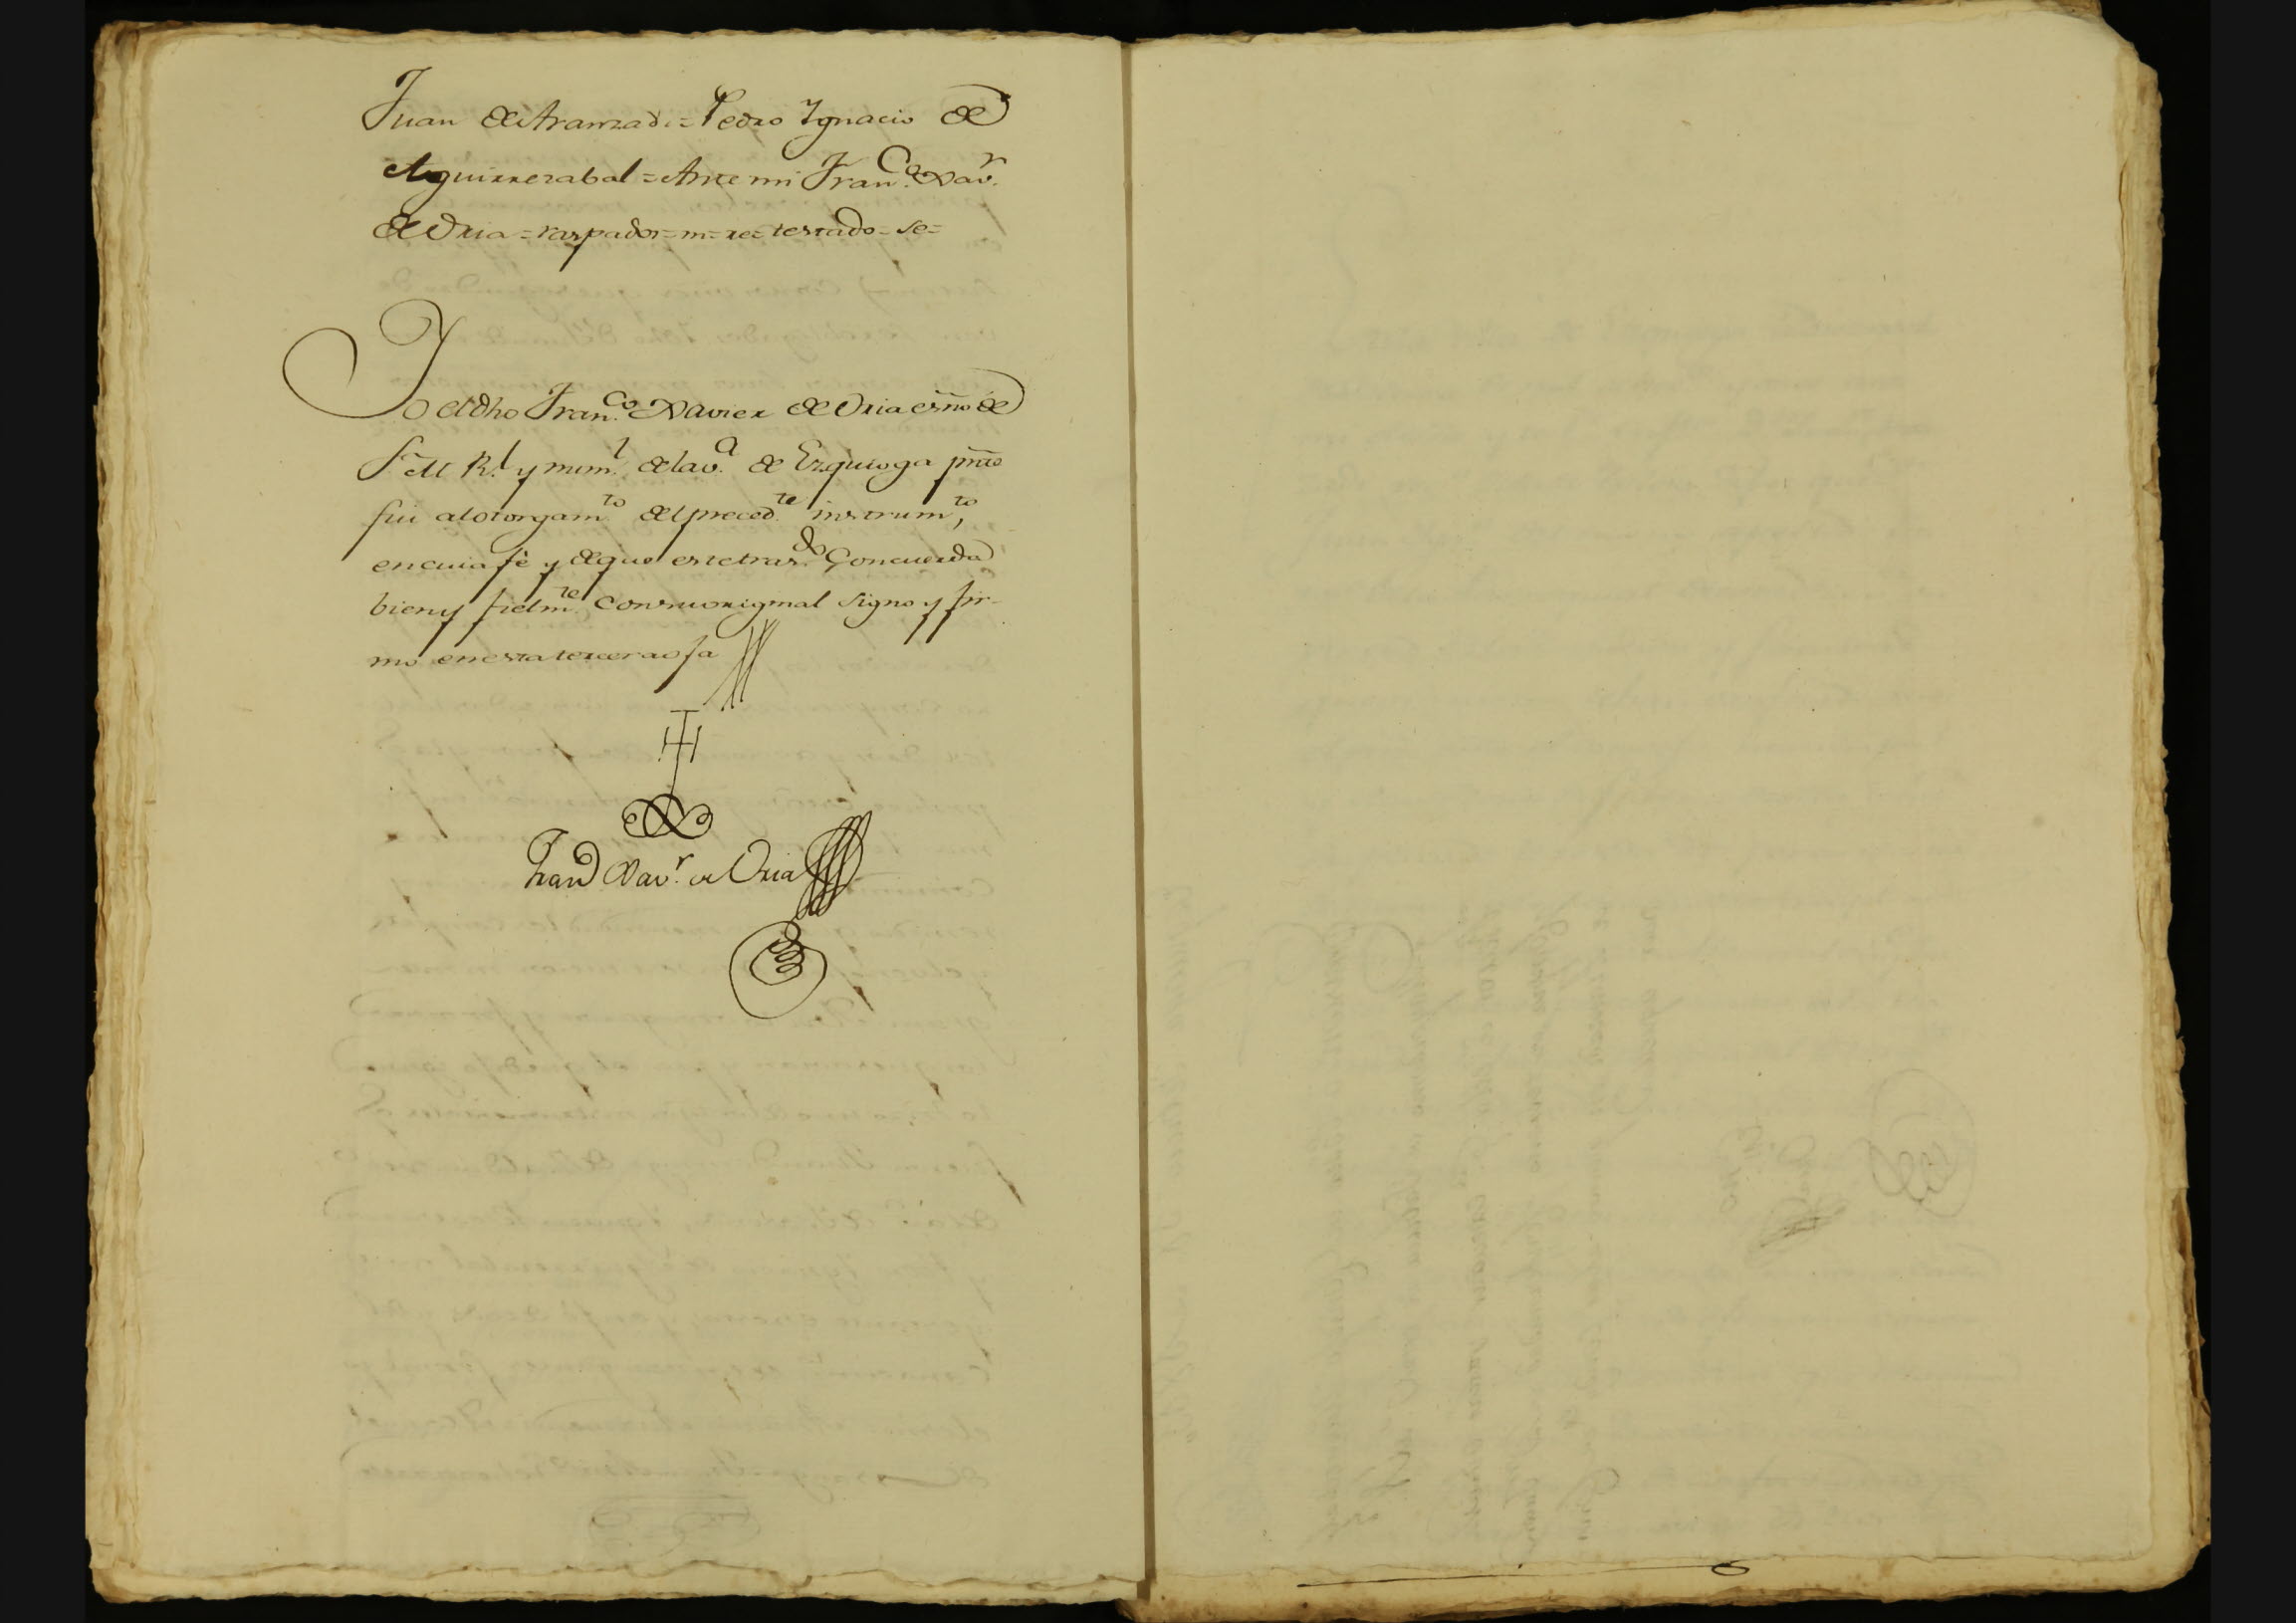 Juan de Aramzadi = Pedro Ygnacio de
Aguirrezabal = Ante mi Fran.co Xav.r
de Oria = raspador = m = re = testado = se =
Yo el dho Fran.co Xavier de Oria essno de
S M R.l y num.l de la v.a de Ezquioga pnte
fui al otorgam.to del preced.te instrum.to,
en cuia fè y de que este tras.do Concuerda
bien y fielm.te con su original signo y fir-
mo en esta tercera oja
Fran.co Xav.r de Oria